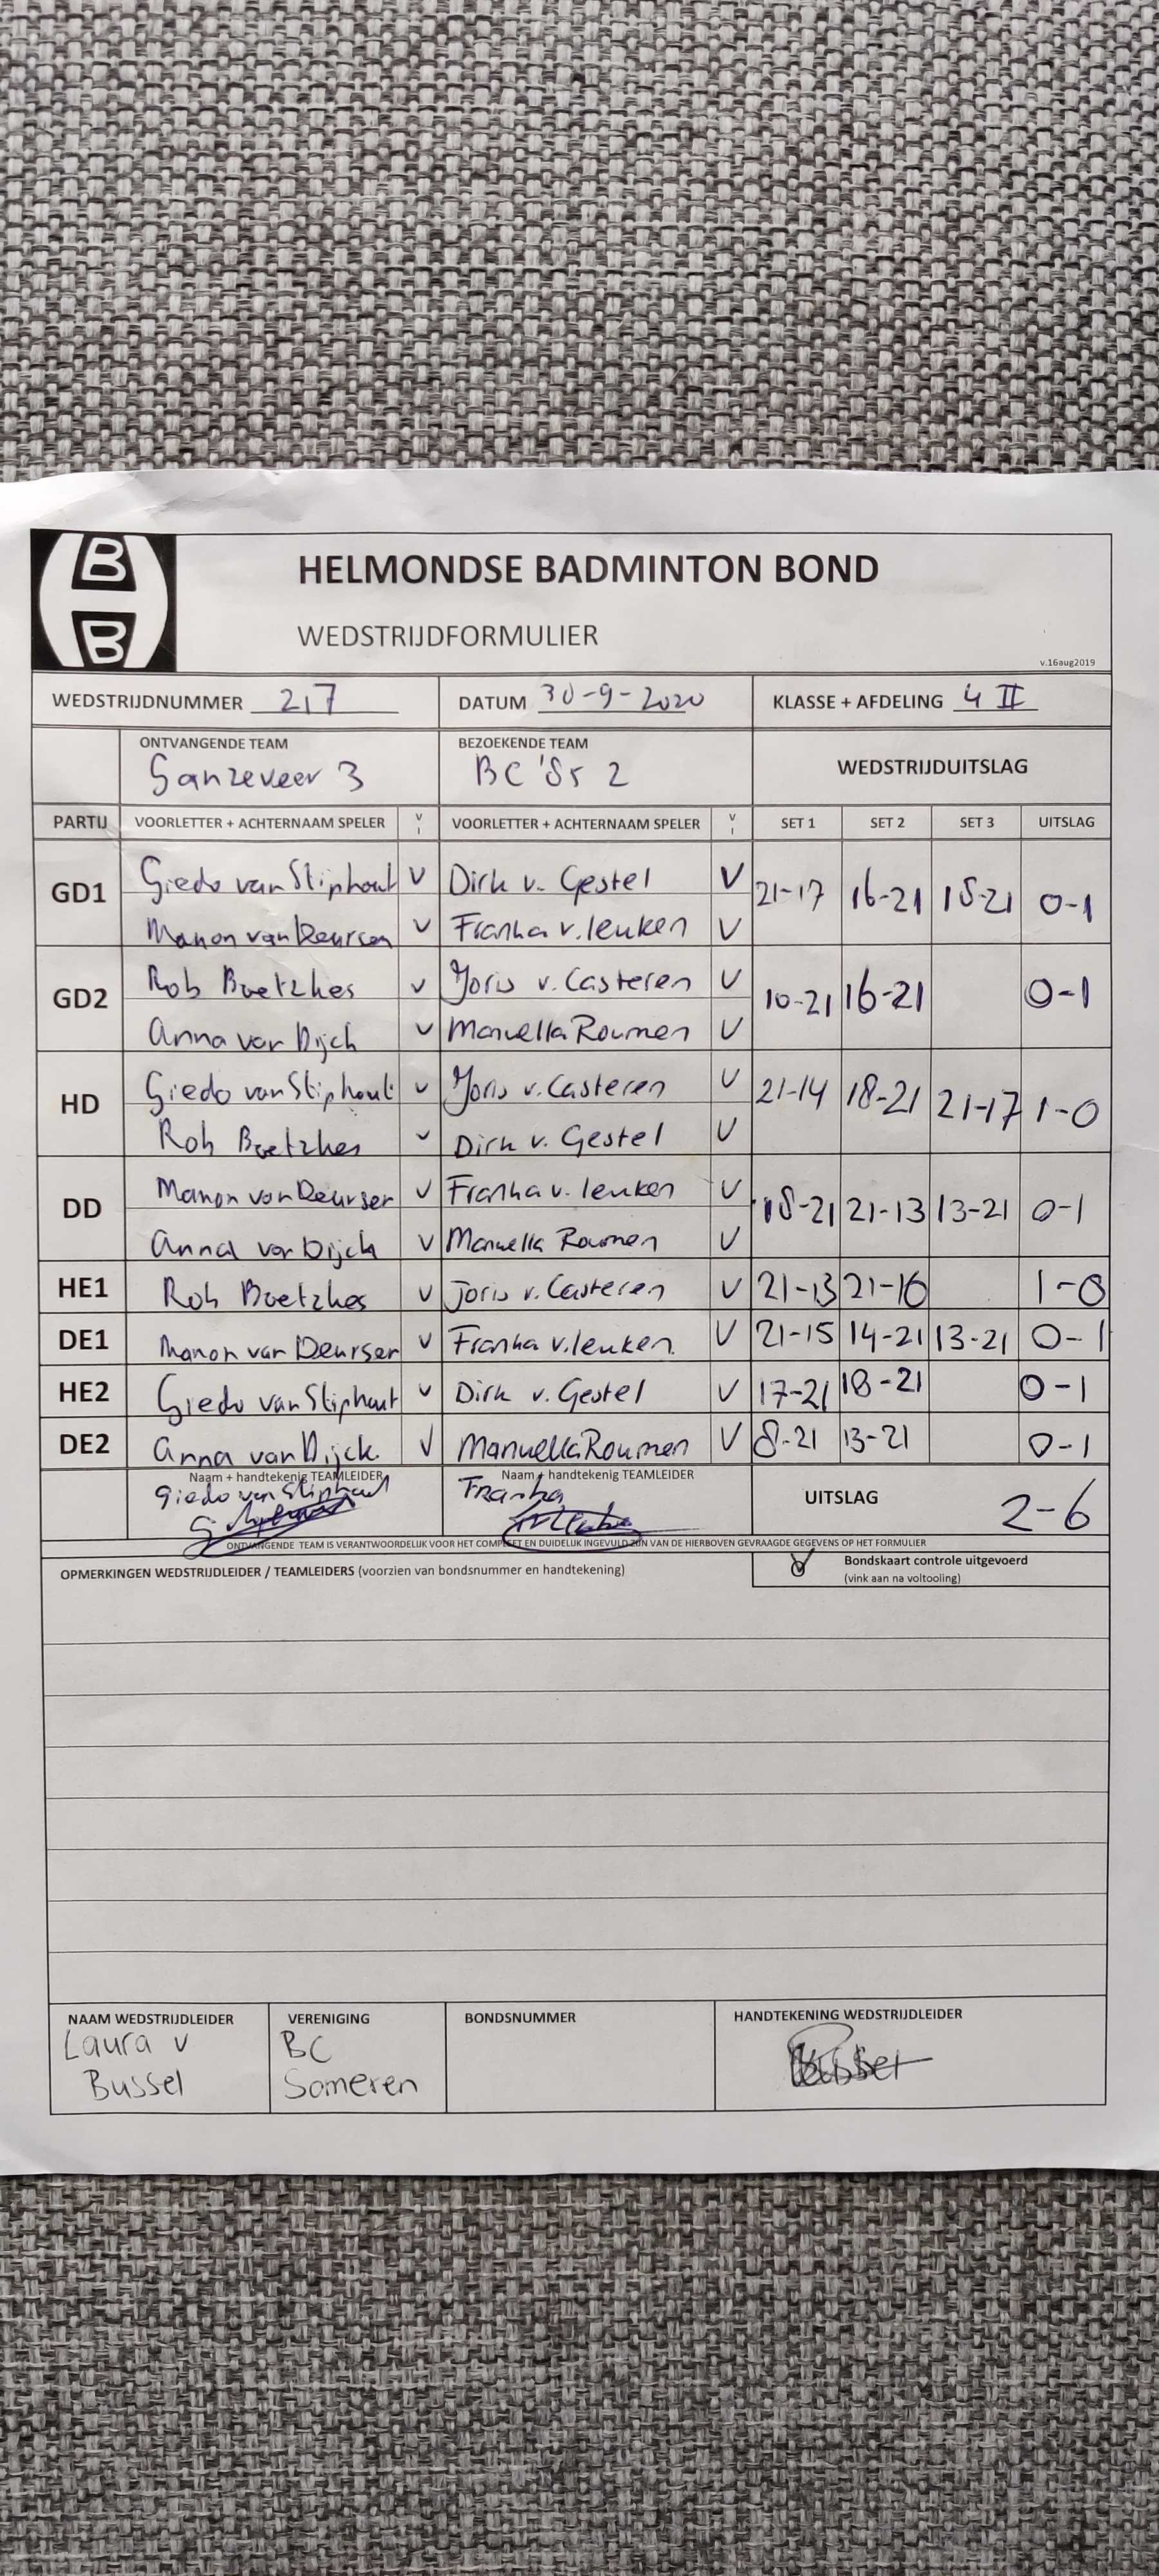 B
B
HELMONDSE BADMINTON BOND
WEDSTRIJDFORMULIER
v.16aug2019
WEDSTRIJDNUMMER 217 DATUM 30-9-2020 KLASSE + AFDELING 4 II
ONTVANGENDE TEAM BEZOEKENDE TEAM WEDSTRIJDUITSLAG
Ganzeveer 3 BC '85 2
PARTIJ VOORLETTER + ACHTERNAAM SPELER V I VOORLETTER + ACHTERNAAM SPELER V I SET 1 SET 2 SET 3 UITSLAG
GD1 Giedo van Stiphout V Dirk v. Gestel V 21-17 16-21 15-21 0-1
Manon van Deursen V Franka v. leuken V
GD2 Rob Boetzkes V Joris v. Casteren V 10-21 16-21 0-1
Anna van Dijck V Manuella Roumen V
HD Giedo van Stiphout V Joris v. Casteren V 21-14 18-21 21-17 1-0
Rob Boetzkes V Dirk v. Gestel V
DD Manon van Deursen V Franka v. leuken V 18-21 21-13 13-21 0-1
Anna van Dijck V Manuella Roumen V
HE1 Rob Boetzkes V Joris v. Casteren V 21-13 21-16 1-0
DE1 Manon van Deursen V Franka v. leuken. V 21-15 14-21 13-21 0-1
HE2 Giedo van Stiphout V Dirk v. Gestel V 17-21 18-21 0-1
DE2 Anna van Dijck. V Manuella Roumen V 8-21 13-21 0-1
Naam + handtekenig TEAMLEIDER Naam + handtekenig TEAMLEIDER
Giedo van Stiphout Franka UITSLAG 2-6
ONTVANGENDE TEAM IS VERANTWOORDELIJK VOOR HET COMPLEET EN DUIDELIJK INGEVULD ZIJN VAN DE HIERBOVEN GEVRAAGDE GEGEVENS OP HET FORMULIER
OPMERKINGEN WEDSTRIJDLEIDER / TEAMLEIDERS (voorzien van bondsnummer en handtekening) V Bondskaart controle uitgevoerd
(vink aan na voltooling)
NAAM WEDSTRIJDLEIDER VERENIGING BONDSNUMMER HANDTEKENING WEDSTRIJDLEIDER
Laura v BC
Bussel Someren Bussel